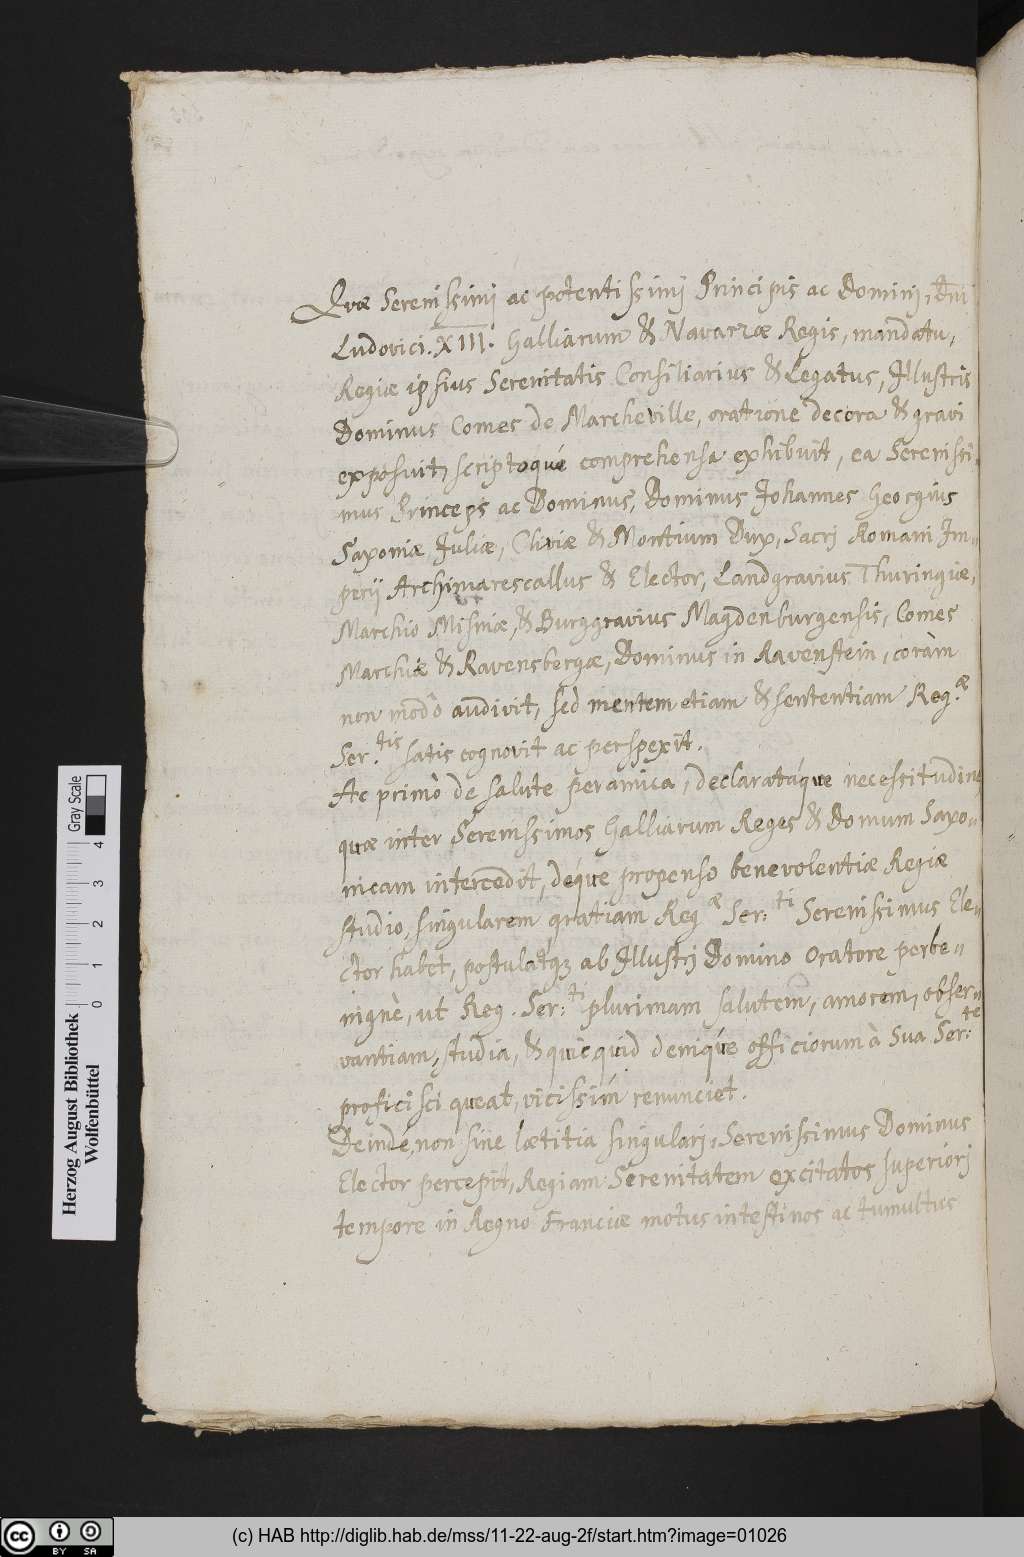 Qvæ Serenissimi ac potentissimij Principis ac Dominj, Dni
Ludovici. XIII. Galliarum & Navarræ Regis, mandatu,
Regiæ ipsius Serenitatis Consiliarius & Legatus, Jllustris
Dominus Comes de Marcheville, oratione decora & gravi
exposuit, scriptoqué comprehensa exhibuit, ea Serenissi-
mus Princeps ac Dominus, Dominus Johannes Georgius
Saxoniæ Juliæ, Cliviæ & Montium Dux, Sacrj Romani Im-
perij Archimarescallus & Elector, Landgravius Thuringiæ,
Marchio Misniæ, & Burggravius Magdenburgensis, Comes
Marchiæ & Ravensbergæ, Dominus in Ravenstein, coràm
non modò audivit, sed mentem etiam & sententiam Reg.æ
Ser.tis satis cognovit ac perspexit.
Ac primò de salute peramica, declaratáque necessitudine
quæ inter Serenissimos Galliarum Reges & Domum Saxo-
nicam intercedit, déque propenso benevolentiæ Regiæ
studio, singularem gratiam Reg æ Ser:ti Serenissimus Ele-
ctor habet, postulatqꝫ ab Jllustrj Domino Oratore perbe-
nignè, ut Reg. Ser:ti plurimam salutem, amorem, obser-
vantiam, studia, & quicquid deniqúe officiorum à Sua Ser:te
proficisci queat, vicissim renunciet.
Deindé, non sine lætitia singularj, Serenissimus Dominus
Elector percepit, Regiam Serenitatem excitatos superiorj
tempore in Regno Franciæ motus intestinos ac tumultus
Herzog August Bibliothek
Wolfenbüttel
Gray Scale
0 1 2 3 4
(c) HAB http://diglib.hab.de/mss/11-22-aug-2f/start.htm?image=01026
cc BY SA